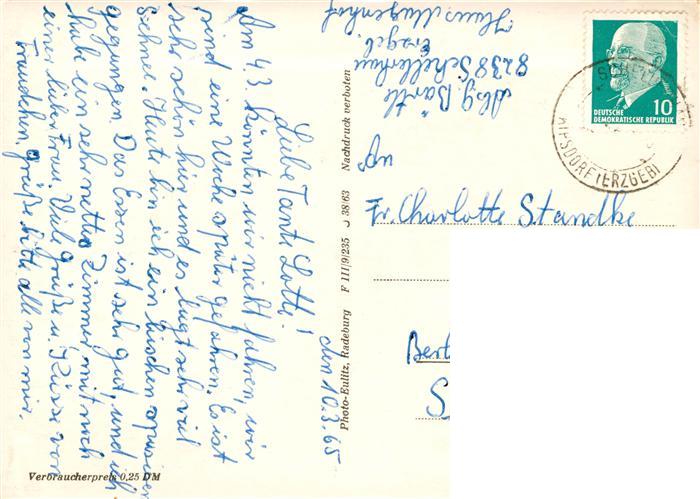 den 10.3.65
Liebe Tante Lotte!
Am 4.3. konnten wir nicht fahren, wir
sind eine Woche später gefahren. Es ist
sehr schön hier und es liegt sehr viel
Schnee. Heute bin ich ein bischen spazieren
gegangen. Das Essen ist sehr gut, und ich
habe ein sehr nettes Zimmer mit noch
einer lieben Frau. Viele Grüße u. Küsse von
Traudchen, grüße bitte alle von mir.
Abg Bartl
8238 Schellerhau
Erzgeb.
Haus Mugenhof
DEUTSCHE
DEMOKRATISCHE REPUBLIK
10
KIPSDORF (ERZGEB)
Fr. Charlotte Standke
Berl
S
Photo-Eulitz, Radeburg F III/9/235 J 38/63 Nachdruck verboten
Verbraucherpreis 0,25 DM